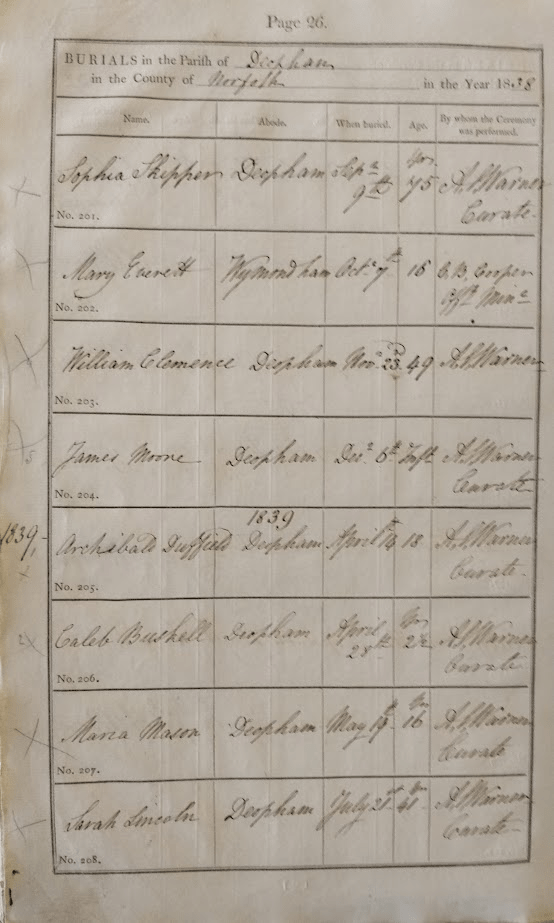 Page 26.
BURIALS in the Parish of Deopham
in the County of Norfolk in the Year 1838
Name. Abode. When buried. Age. By whom the Ceremony was performed.
Sophia Skipper Deopham Sepr 9th Yrs. 75 A P Warner Curate.
No. 201.
Mary Everett Wymondham Octr 7th 16 C. B. Cooper Offg Minr
No. 202.
William Clemence Deopham Novr 23d 49 A P Warner
No. 203.
James Moore Deopham Decr 6th Inft A P Warner Curate
No. 204.
1839
1839, Archibald Duffield Deopham April 14th 18 A P Warner Curate.
No. 205.
Caleb Bushell Deopham April 28th Yrs 2½ A P Warner Curate
No. 206.
Maria Mason Deopham May 19th Yrs 16 A P Warner Curate
No. 207.
Sarah Lincoln Deopham July 21st Yrs 41 A P Warner Curate
No. 208.